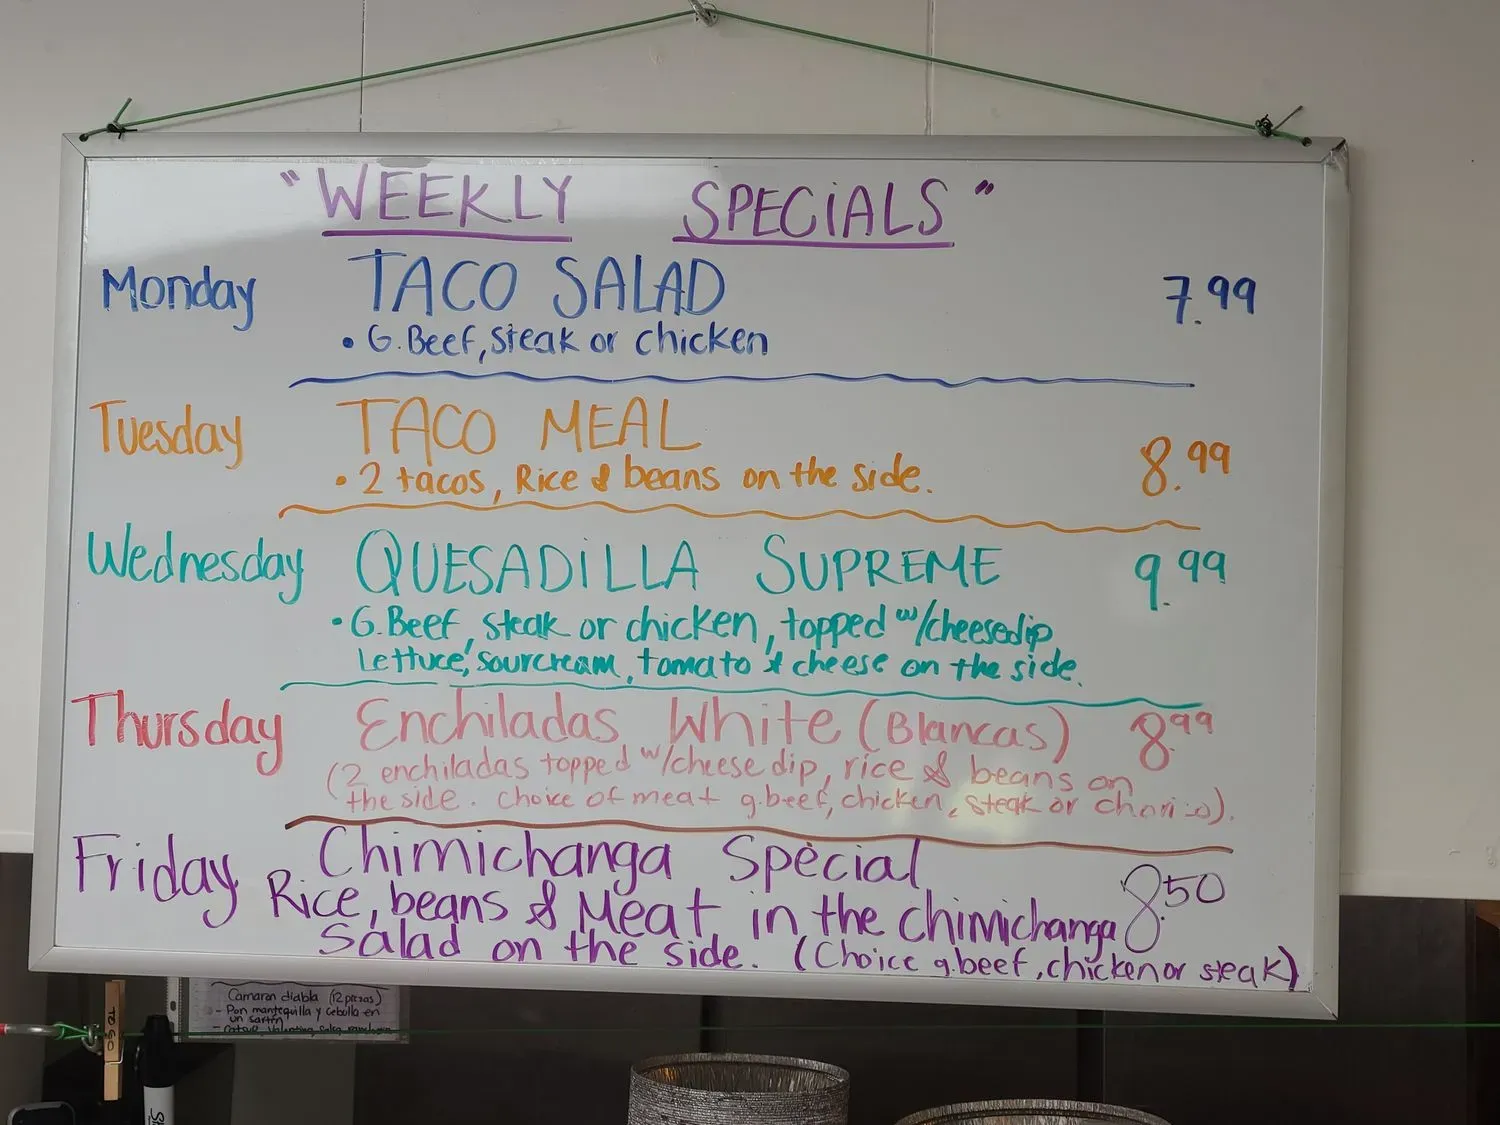 "WEEKLY SPECIALS"
Monday TACO SALAD 7.99
• G.Beef, steak or chicken
Tuesday TACO MEAL 8.99
• 2 tacos, Rice & beans on the side.
Wednesday QUESADILLA SUPREME 9.99
• G.Beef, steak or chicken, topped w/cheesedip
Lettuce, sourcream, tomato & cheese on the side.
Thursday Enchiladas White (Blancas) 8.99
(2 enchiladas topped w/cheese dip, rice & beans on
the side. choice of meat g.beef, chicken, steak or
Friday Chimichanga Special 8.50
Rice, beans & Meat in the chimichanga
Salad on the side. (Choice g.beef, chicken or steak)
Camaron diabla (12 piezas)
- Pan mantequilla y cebolla en
un sarten
TO GO